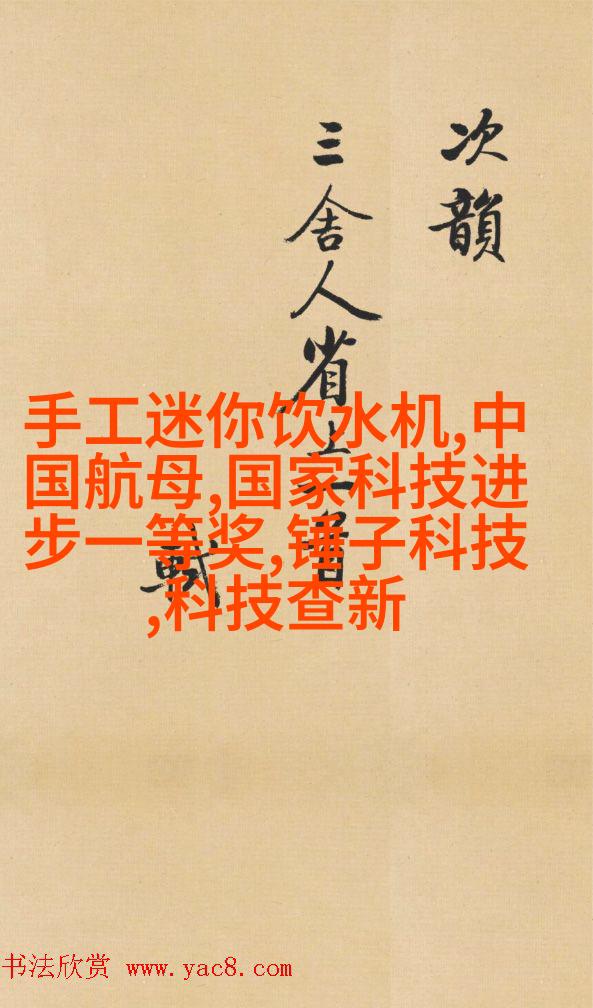 次韻
三舍人省上一首
軾
手工迷你饮水机,中
国航母,国家科技进
步一等奖,锤子科技
,科技查新
书法欣赏 www.yac8.com